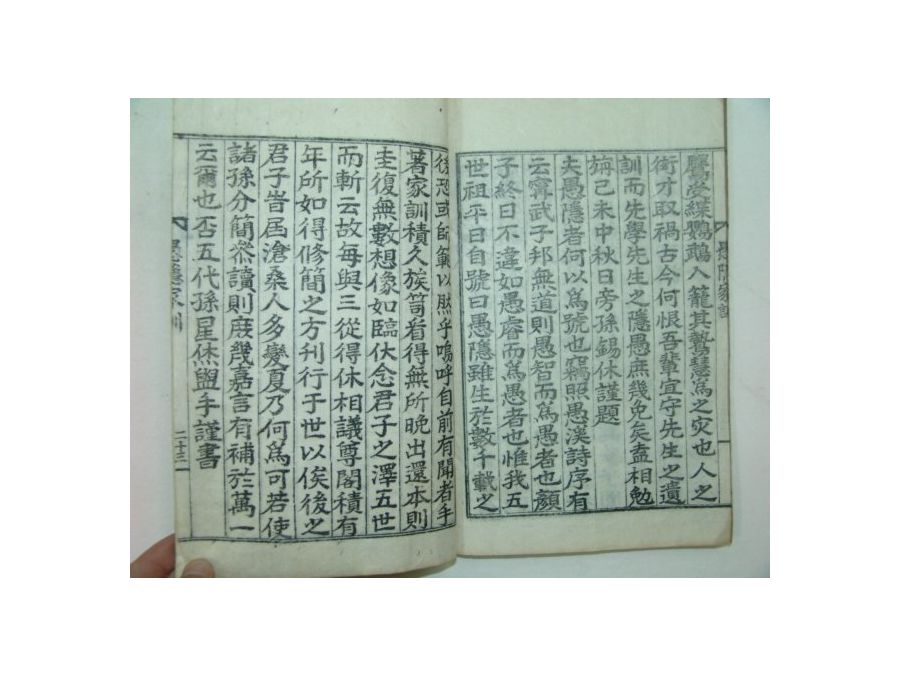 鷹嘗緤鸚鵡入籠其鷙慧爲之灾也人之
衒才取禍古今何恨吾輩宜守先生之遺
訓而先學先生之隱愚庶幾免矣盍相勉
旃己未中秋日旁孫錫休謹題
夫愚隱者何以爲號也竊照愚溪詩序有
云甯武子邦無道則愚智而爲愚者也顔
子終日不違如愚睿而爲愚者也惟我五
世祖平日自號曰愚隱雖生於數千載之
愚隱家訓
後恐或師範以然乎嗚呼自前有聞者手
著家訓積久族笥看得無所晚出還本則
圭復無數想像如臨伏念君子之澤五世
而斬云故每與三從得休相議尊閣積有
年所如得修簡之方刊行于世以俟後之
君子昔屆滄桑人多變夏乃何爲可若使
諸孫分簡蒸讀則庶幾嘉言有補於萬一
云爾也否五代孫星烋盥手謹書
愚隱家訓
二十三